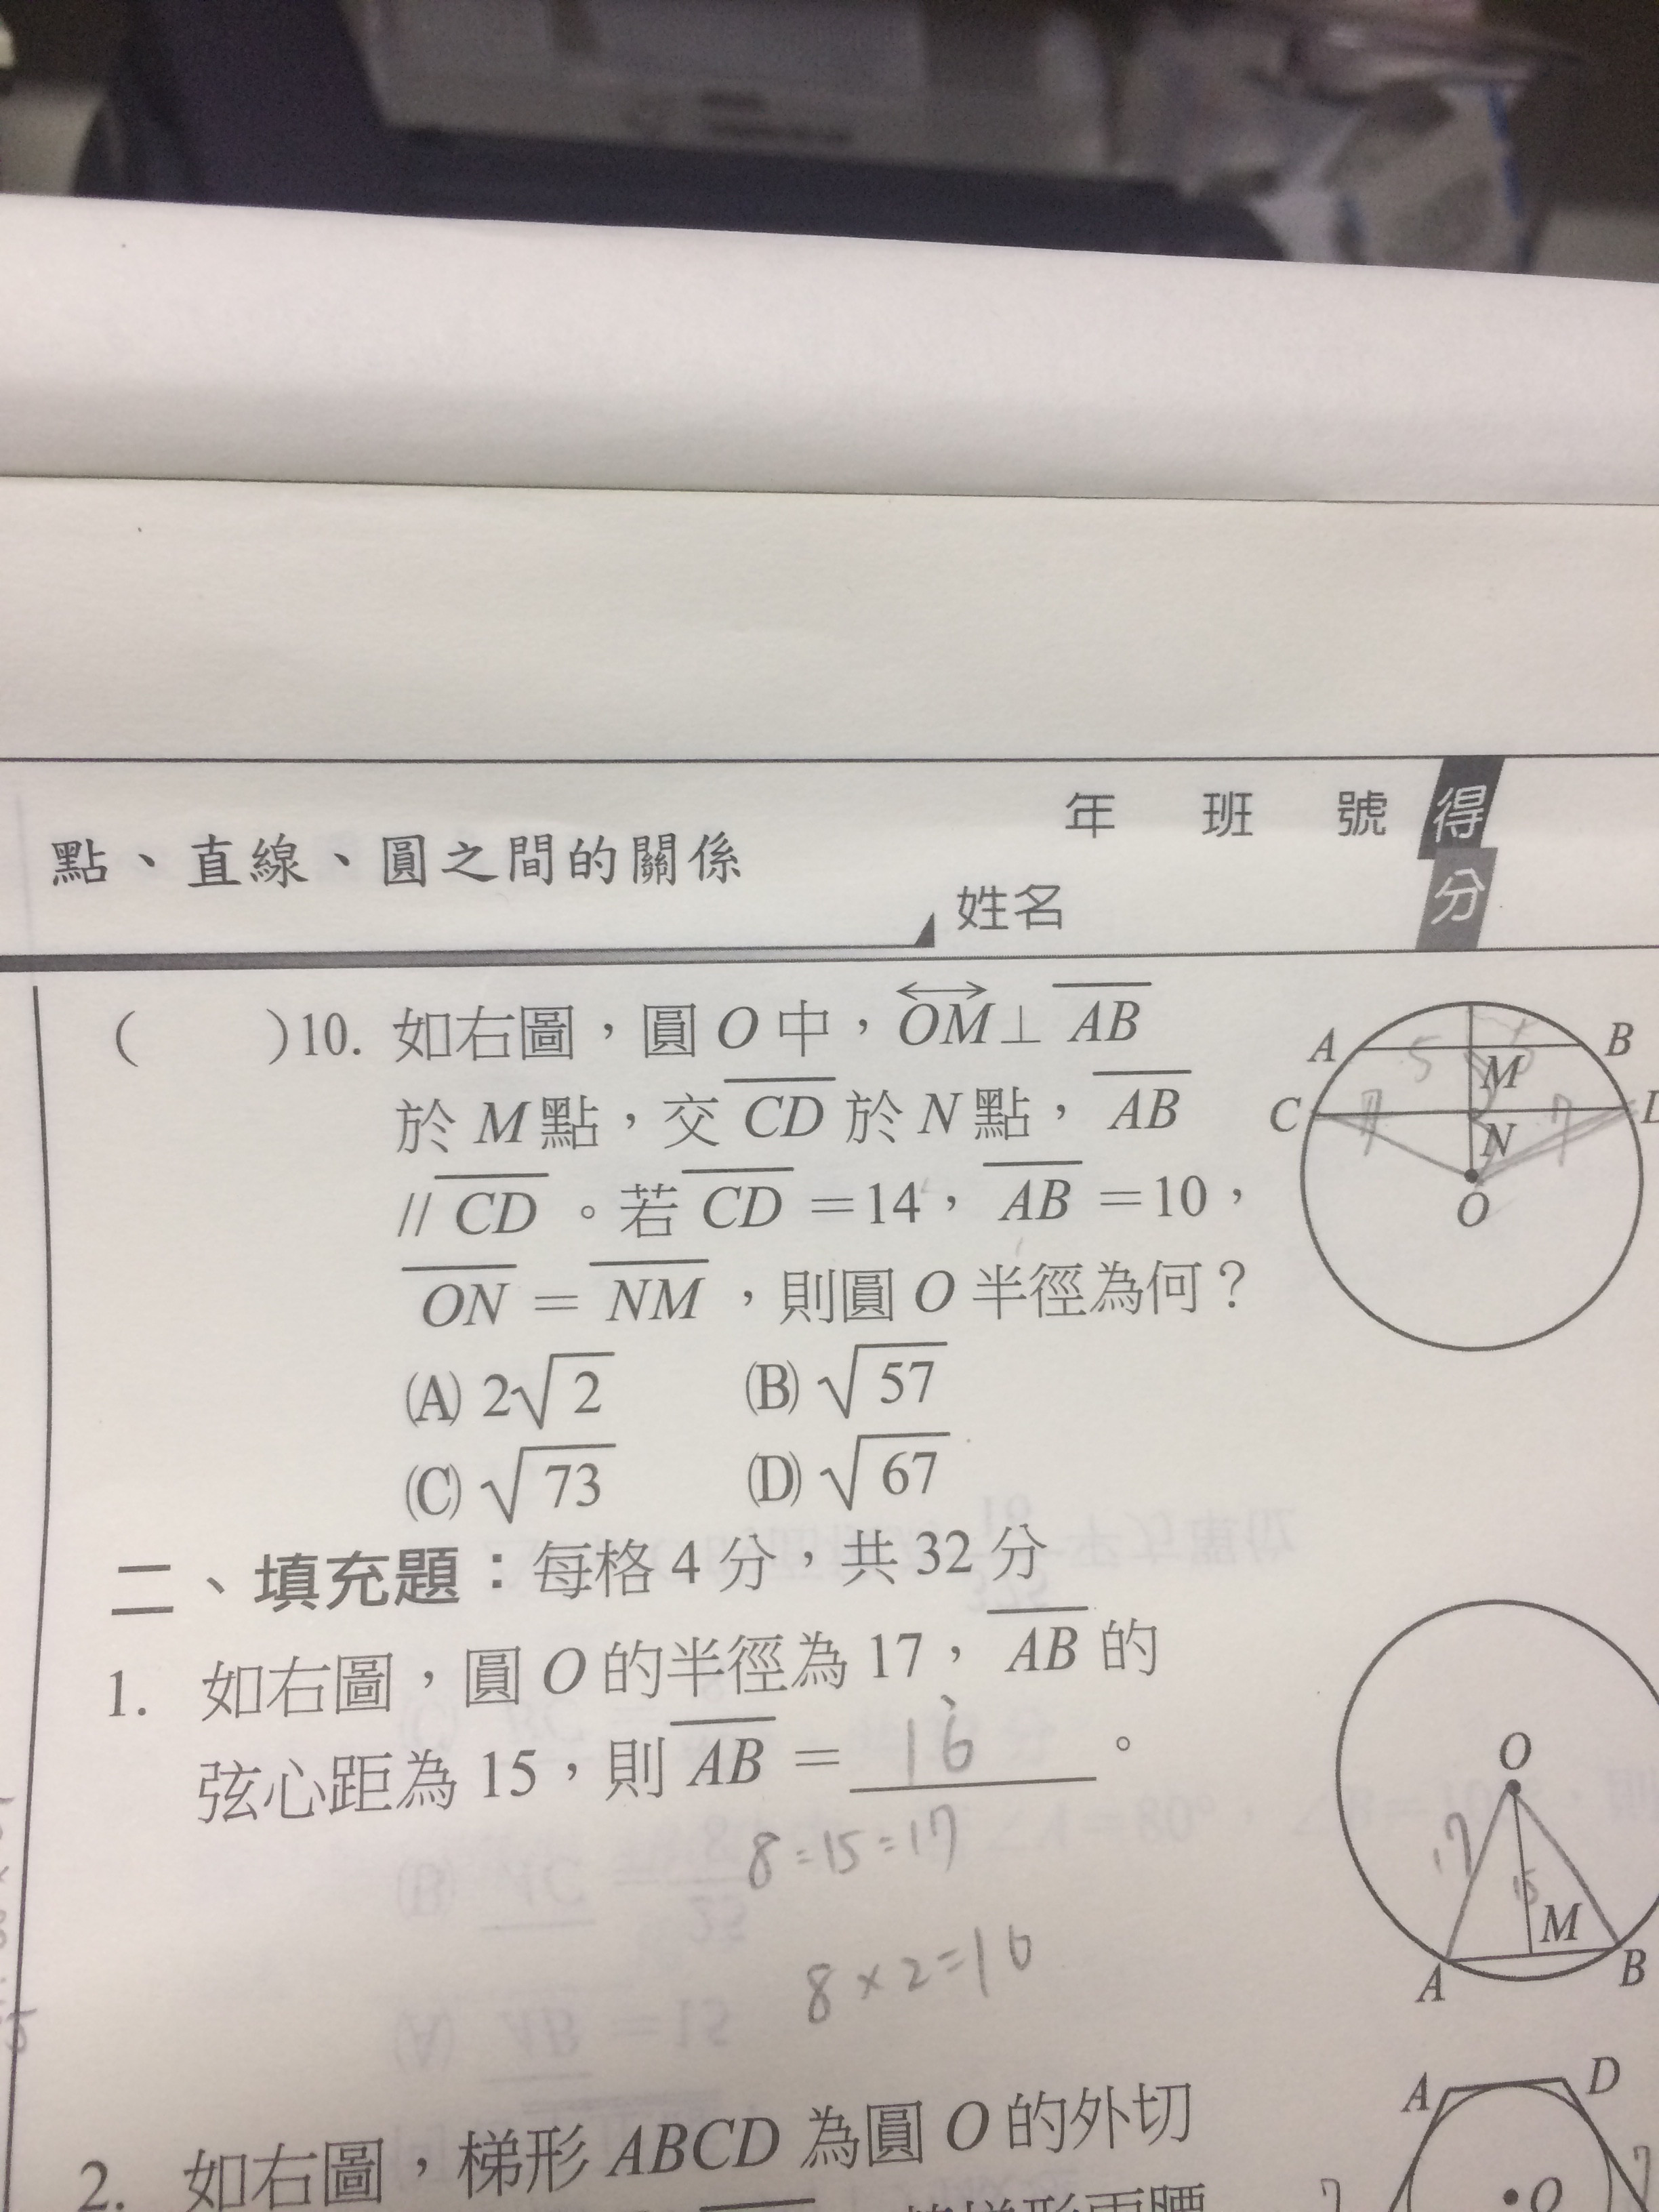 年 班 號 得分
點、直線、圓之間的關係
姓名
( )10. 如右圖,圓 O 中,OM⊥AB
於 M 點,交 CD 於 N 點, AB
// CD 。若 CD =14, AB =10,
ON = NM ,則圓 O 半徑為何?
(A) 2√2 (B) √57
(C) √73 (D) √67
A 5 B
M
C 7 7
N
O
二、填充題:每格 4 分,共 32 分
1. 如右圖,圓 O 的半徑為 17, AB 的
弦心距為 15,則 AB = 16 。
8=15=17
8×2=16
O
17 15
M
A B
2. 如右圖,梯形 ABCD 為圓 O 的外切
A D
O